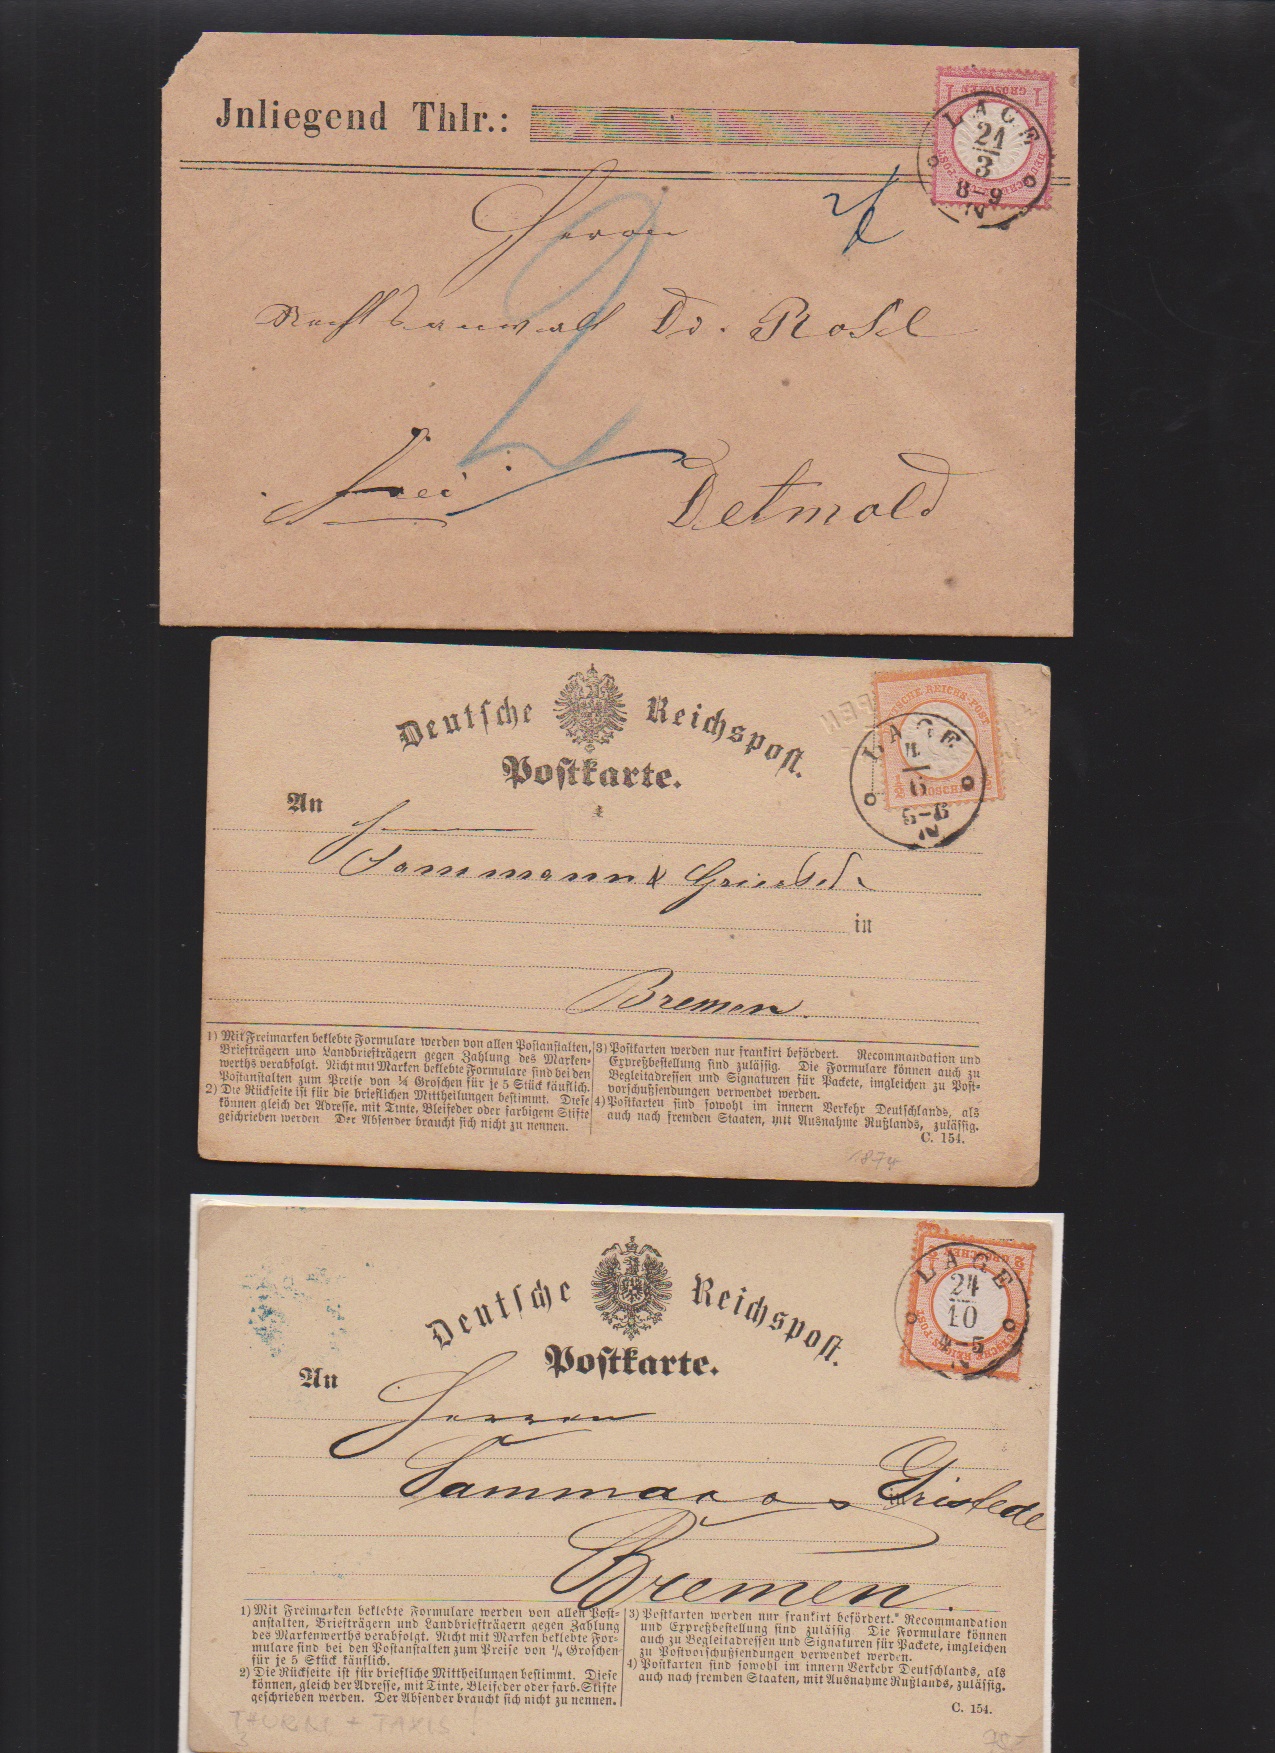 Jnliegend Thlr.:
1 GROSCHEN 1
LAGE
21
3
8-9
N
Herrn
Rechtsanwalt Dr. Rosel
2
frei
Detmold
Deutsche Reichspost.
Postkarte.
DEUTSCHE REICHS-POST
LAGE
4
6
5-6
N
An
in
Bremen.
1) Mit Freimarken beklebte Formulare werden von allen Postanstalten,
Briefträgern und Landbriefträgern gegen Zahlung des Marken-
werths verabfolgt. Nicht mit Marken beklebte Formulare sind bei den
Postanstalten zum Preise von ¼ Groschen für je 5 Stück käuflich.
2) Die Rückseite ist für die brieflichen Mittheilungen bestimmt. Diese
können gleich der Adresse, mit Tinte, Bleifeder oder farbigem Stifte
geschrieben werden. Der Absender braucht sich nicht zu nennen.
3) Postkarten werden nur frankirt befördert. Recommandation und
Expreßbestellung sind zulässig. Die Formulare können auch zu
Begleitadressen und Signaturen für Packete, imgleichen zu Post-
vorschußsendungen verwendet werden.
4) Postkarten sind sowohl im innern Verkehr Deutschlands, als
auch nach fremden Staaten, mit Ausnahme Rußlands, zulässig.
C. 154.
1874
Deutsche Reichspost.
Postkarte.
LAGE
24
10
4-5
N
An
Herren
in
Gristede
Bremen.
1) Mit Freimarken beklebte Formulare werden von allen Post-
anstalten, Briefträgern und Landbriefträgern gegen Zahlung
des Markenwerths verabfolgt. Nicht mit Marken beklebte For-
mulare sind bei den Postanstalten zum Preise von ¼ Groschen
für je 5 Stück käuflich.
2) Die Rückseite ist für briefliche Mittheilungen bestimmt. Diese
können, gleich der Adresse, mit Tinte, Bleifeder oder farb. Stifte
geschrieben werden. Der Absender braucht sich nicht zu nennen.
3) Postkarten werden nur frankirt befördert. Recommandation
und Expreßbestellung sind zulässig. Die Formulare können
auch zu Begleitadressen und Signaturen für Packete, imgleichen
zu Postvorschußsendungen verwendet werden.
4) Postkarten sind sowohl im innern Verkehr Deutschlands, als
auch nach fremden Staaten, mit Ausnahme Rußlands, zulässig.
C. 154.
THURN + TAXIS!